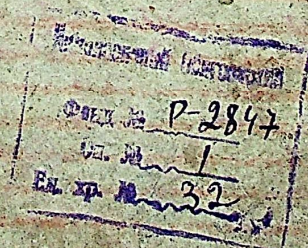 Фонд № Р-2847
Оп. № 1
Ед. хр. № 32